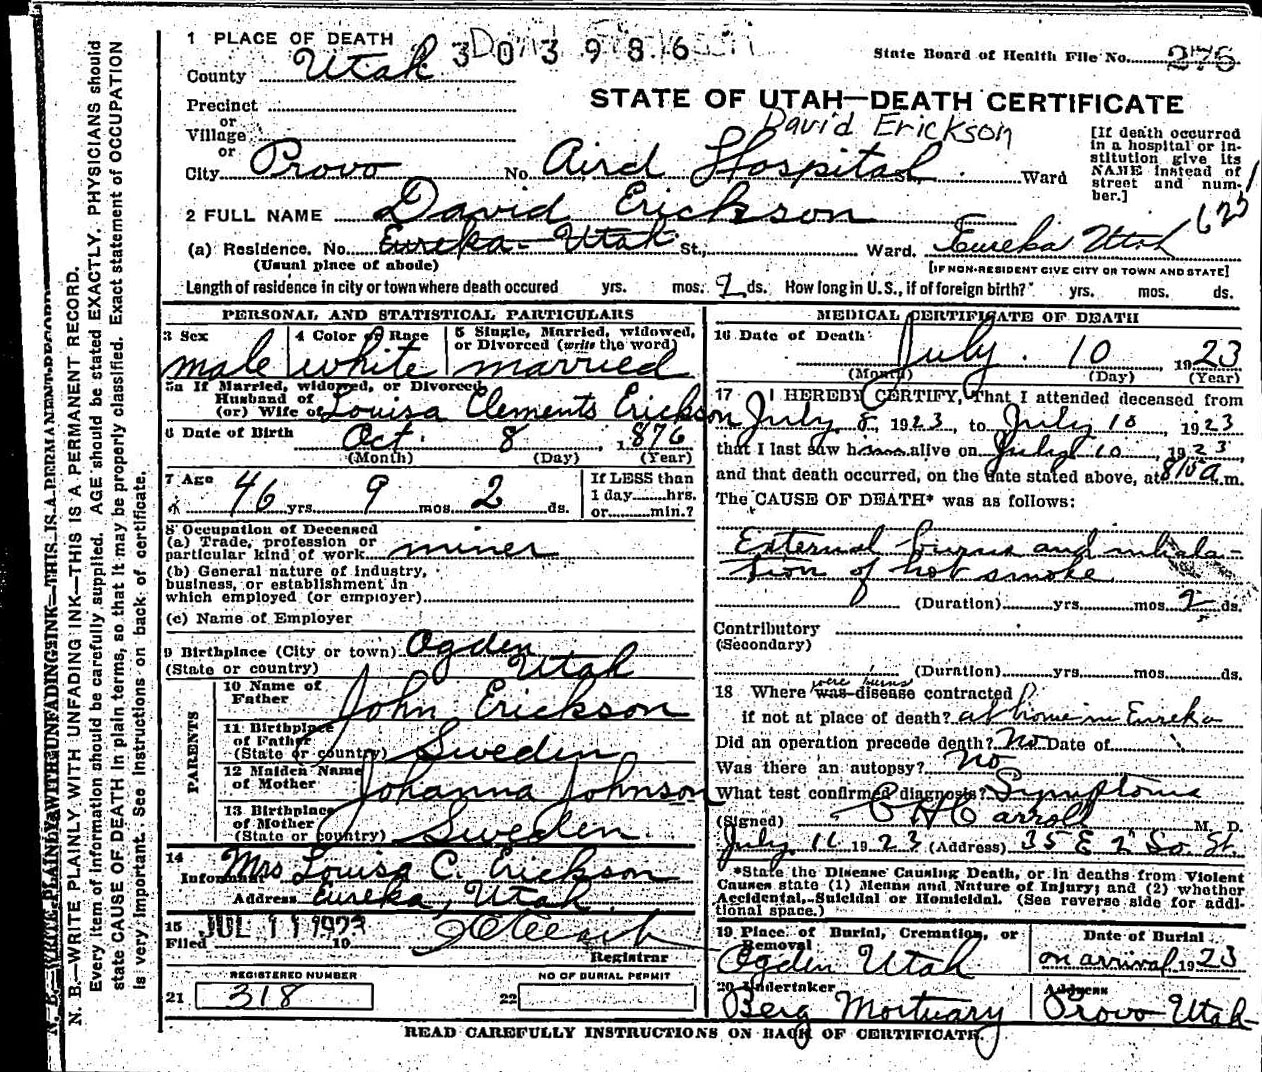 1 PLACE OF DEATH
303986
State Board of Health File No. 275
County Utah
STATE OF UTAH—DEATH CERTIFICATE
David Erickson
Precinct
or
Village
or
City Provo No. Aird Hospital St., Ward
[If death occurred in a hospital or institution give its NAME instead of street and number.]
2 FULL NAME David Erickson
625
(a) Residence, No. Eureka - Utah St., Ward. Eureka Utah
(Usual place of abode)
[IF NON-RESIDENT GIVE CITY OR TOWN AND STATE]
Length of residence in city or town where death occured yrs. mos. 2 ds. How long in U.S., if of foreign birth? yrs. mos. ds.
PERSONAL AND STATISTICAL PARTICULARS
3 Sex
male
4 Color or Race
white
5 Single, Married, widowed, or Divorced (write the word)
married
5a If Married, widowed, or Divorced
Husband of
(or) Wife of Louisa Clements Erickson
6 Date of Birth Oct. 8, 1876
(Month) (Day) (Year)
7 Age 46 yrs. 9 mos. 2 ds.
If LESS than
1 day hrs.
or min.?
8 Occupation of Deceased
(a) Trade, profession or
particular kind of work miner
(b) General nature of industry,
business, or establishment in
which employed (or employer)
(c) Name of Employer
9 Birthplace (City or town) Ogden
(State or country) Utah
PARENTS
10 Name of
Father John Erickson
11 Birthplace
of Father
(State or country) Sweden
12 Maiden Name
of Mother Johanna Johnson
13 Birthplace
of Mother
(State or country) Sweden
14
Informant Mrs Louisa C. Erickson
Address Eureka, Utah.
15
Filed JUL 11 1923 19
Registrar
REGISTERED NUMBER
21 318
NO OF BURIAL PERMIT
22
MEDICAL CERTIFICATE OF DEATH
16 Date of Death
July 10 1923
(Month) (Day) (Year)
17 I HEREBY CERTIFY, That I attended deceased from
July 8, 1923, to July 10, 1923
that I last saw him alive on July 10, 1923
and that death occurred, on the date stated above, at 8/15 a.m.
The CAUSE OF DEATH* was as follows:
External burns and inhala-
tion of hot smoke
(Duration) yrs. mos. 2 ds.
Contributory
(Secondary)
(Duration) yrs. mos. ds.
were burns
18 Where was disease contracted
if not at place of death? at home in Eureka
Did an operation precede death? No Date of
Was there an autopsy? No
What test confirmed diagnosis? Symptoms
(Signed) C H Carroll M. D.
July 11 1923 (Address) 35 E 2" So. St.
*State the Disease Causing Death, or in deaths from Violent
Causes state (1) Means and Nature of Injury; and (2) whether
Accidental, Suicidal or Homicidal. (See reverse side for addi-
tional space.)
19 Place of Burial, Cremation, or
Removal
Ogden Utah
Date of Burial
on arrival 1923
20 Undertaker
Berg Mortuary
Address
Provo Utah
READ CAREFULLY INSTRUCTIONS ON BACK OF CERTIFICATE.
N. B.—WRITE PLAINLY WITH UNFADING INK—THIS IS A PERMANENT RECORD
N. B.—WRITE PLAINLY WITH UNFADING INK—THIS IS A PERMANENT RECORD.
Every item of information should be carefully supplied. AGE should be stated EXACTLY. PHYSICIANS should
state CAUSE OF DEATH in plain terms, so that it may be properly classified. Exact statement of OCCUPATION
is very important. See instructions on back of certificate.